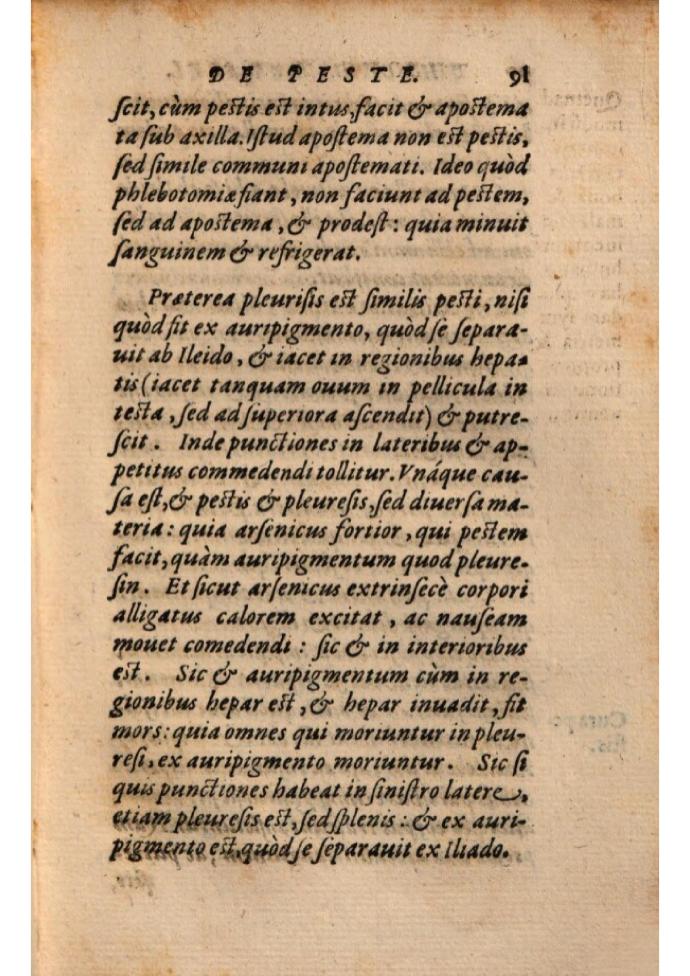 DE PESTE. 91
ſcit, cùm peſtis eſt intus, facit & apoſtema
ta ſub axilla. Iſtud apoſtema non eſt peſtis,
ſed ſimile communi apoſtemati. Ideo quòd
phlebotomiæ fiant, non faciunt ad peſtem,
ſed ad apoſtema, & prodeſt: quia minuit
ſanguinem & refrigerat.
Præterea pleuriſis eſt ſimilis peſti, niſi
quòd ſit ex auripigmento, quòd ſe ſepara-
uit ab Ileido, & iacet in regionibus hepa-
tis (iacet tanquam ouum in pellicula in
teſta, ſed ad ſuperiora aſcendit) & putre-
ſcit. Inde punctiones in lateribus & ap-
petitus commedendi tollitur. Vnáque cau-
ſa eſt, & peſtis & pleureſis, ſed diuerſa ma-
teria: quia arſenicus fortior, qui peſtem
facit, quàm auripigmentum quod pleure-
ſin. Et ſicut arſenicus extrinſecè corpori
alligatus calorem excitat, ac nauſeam
mouet comedendi: ſic & in interioribus
eſt. Sic & auripigmentum cùm in re-
gionibus hepar eſt, & hepar inuadit, fit
mors: quia omnes qui moriuntur in pleu-
reſi, ex auripigmento moriuntur. Sic ſi
quis punctiones habeat in ſiniſtro latere,
etiam pleureſis eſt, ſed ſplenis: & ex auri-
pigmento eſt, quòd ſe ſeparauit ex Iliado.